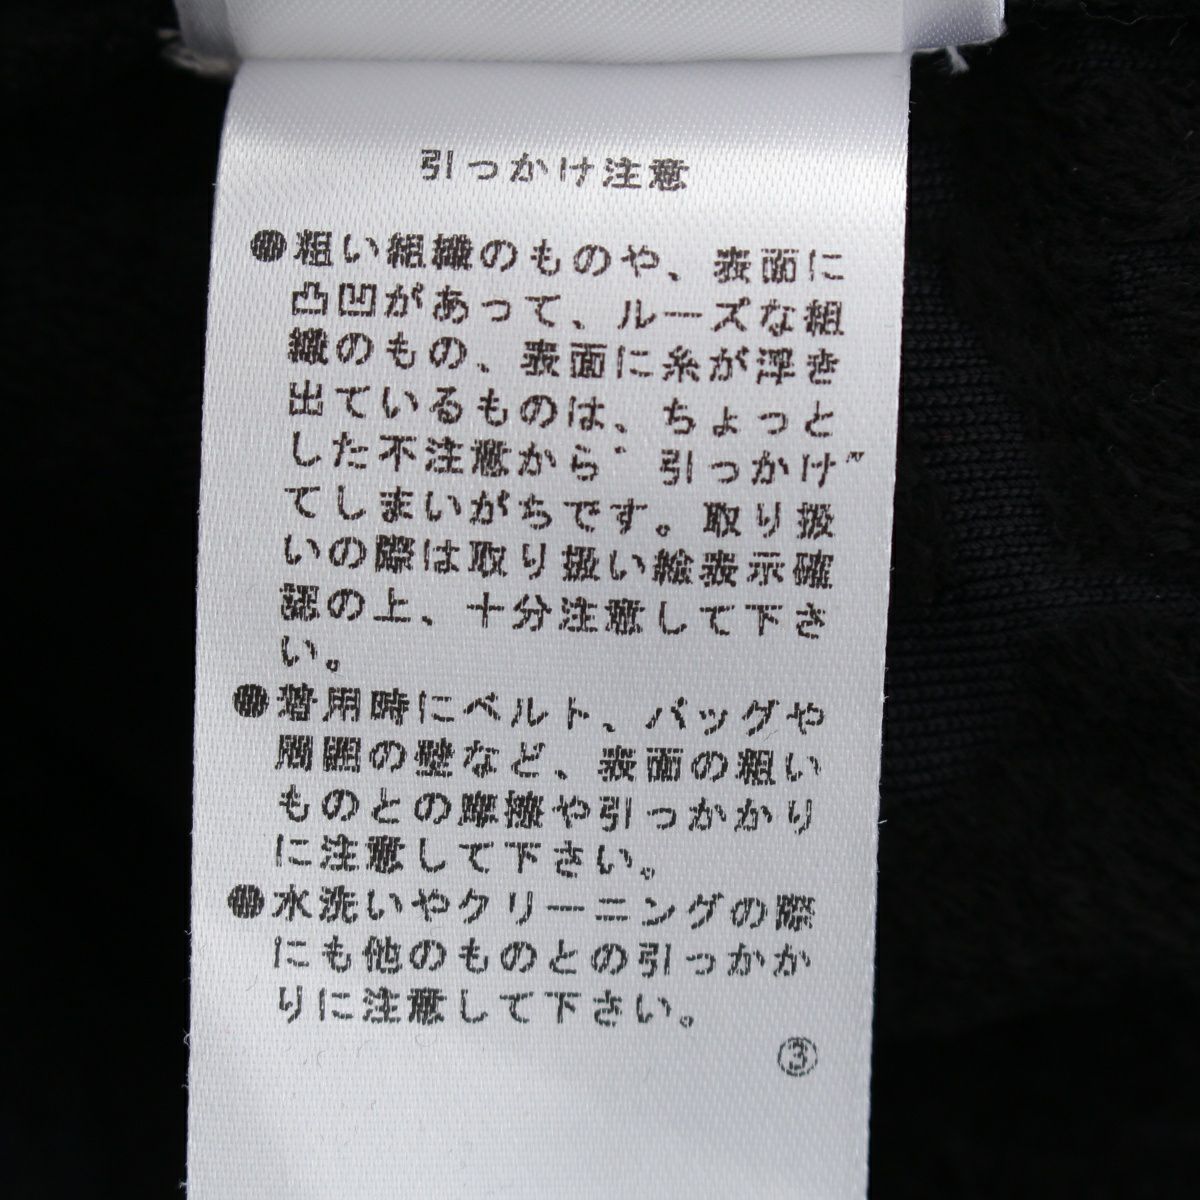 引っかけ注意
●粗い組織のものや、表面に
凸凹があって、ルーズな組
織のもの、表面に糸が浮き
出ているものは、ちょっと
した不注意から〝引っかけ〟
てしまいがちです。取り扱
いの際は取り扱い絵表示確
認の上、十分注意して下さ
い。
●着用時にベルト、バッグや
周囲の壁など、表面の粗い
ものとの摩擦や引っかかり
に注意して下さい。
●水洗いやクリーニングの際
にも他のものとの引っかか
りに注意して下さい。
③